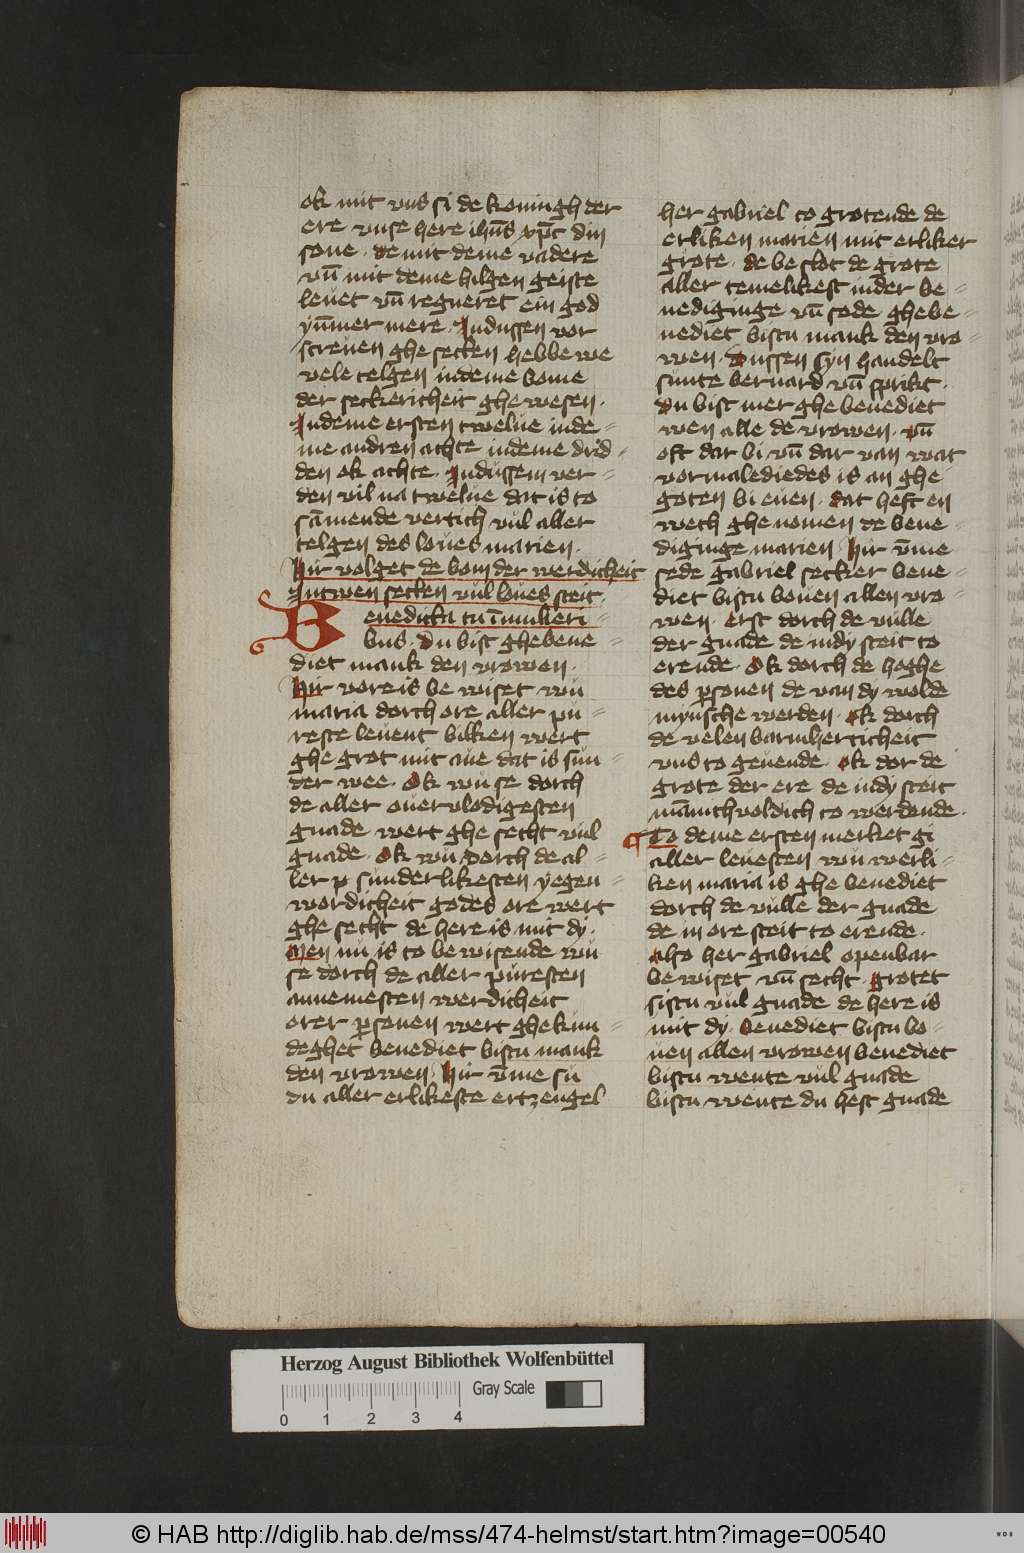 ok mit vns si de koningh der
ere vnse here ihūs xp̄c din
sone · de mit deme vadere
vn̄ mit deme hilgen geiste
leuet vn̄ regneret ein god
ym̄mer mere · Jn dussen vor
screuen ghe secken hebbe we
vele telgen in deme bome
der seckericheit ghe wesen ·
Jn deme ersten twelue in de=
me andren achte in deme drid=
den ok achte · Jn dussem ver=
den vil na twelue dat is to
sāmende vertich vul aller
telgen des loues marien ·
Hir volget de bom der werdicheit
Jn twen secken vul loues steit ·
Benedicta tu ī mulieri=
bus · Du bist ghe bene=
diet mank den vrowen ·
Hir vore is be wiset wu
maria dorch ore aller pu=
reste leuent bilken wert
ghe grot mit aue dat is sun=
der wee · Ok wu se dorch
de aller ouervlodigesten
gnade wert ghe secht vul
gnade · Ok wu dorch de al=
ler p sunderlikesten yegen=
wordicheit godes ore wert
ghe secht de here is mit dy ·
Men nu is to be wisende wu
se dorch de aller puresten
annemesten werdicheit
orer ꝑsonen wert ghe kun=
deghet benediet bistu mank
den vrowen · Hir vm̄e su
du aller erlikeste ertzengel
her gabriel to grotende de
erliken marien mit erliker
grote · de be slot de grote
aller temelikest in der be=
nediginge vn̄ sede ghe be=
nediet bistu mank den vro=
wen · Dussen syn handelt
sunte bernard vn̄ sprikt ·
Du bist mer ghe benediet
wen alle de vrowen · vn̄
oft dar bi vn̄ dar van wat
vormalediedes is an ghe
goten bi euen · dat heft en
wech ghe nomen de bene=
diginge marien Hir vm̄e
sede gabriel secker bene=
diet bistu bouen allen vro=
wen · Erst dorch de vulle
der gnade de in dy steit to
erende · Ok dorch de hoghe
des ꝑsonen de van dy wolde
mynsche werden · Ok dorch
de velen barmherticheit
vns to geuende · Ok dor de
grote der ere de in dy steit
mānichuoldich to werdende ·
¶ To deme ersten merket gi
aller leuesten wu werli=
ken maria is ghe benediet
dorch de vulle der gnade
de in ore steit to erende ·
Alzo her gabriel openbar
be wiset vn̄ secht · Grotet
sistu vul gnade de here is
mit dy · Benediet bistu bo=
uen allen vrowen benediet
bistu wente vul gnade
bistu wente du hest gnade
Herzog August Bibliothek Wolfenbüttel
Gray Scale
0 1 2 3 4
© HAB http://diglib.hab.de/mss/474-helmst/start.htm?image=00540
WDB